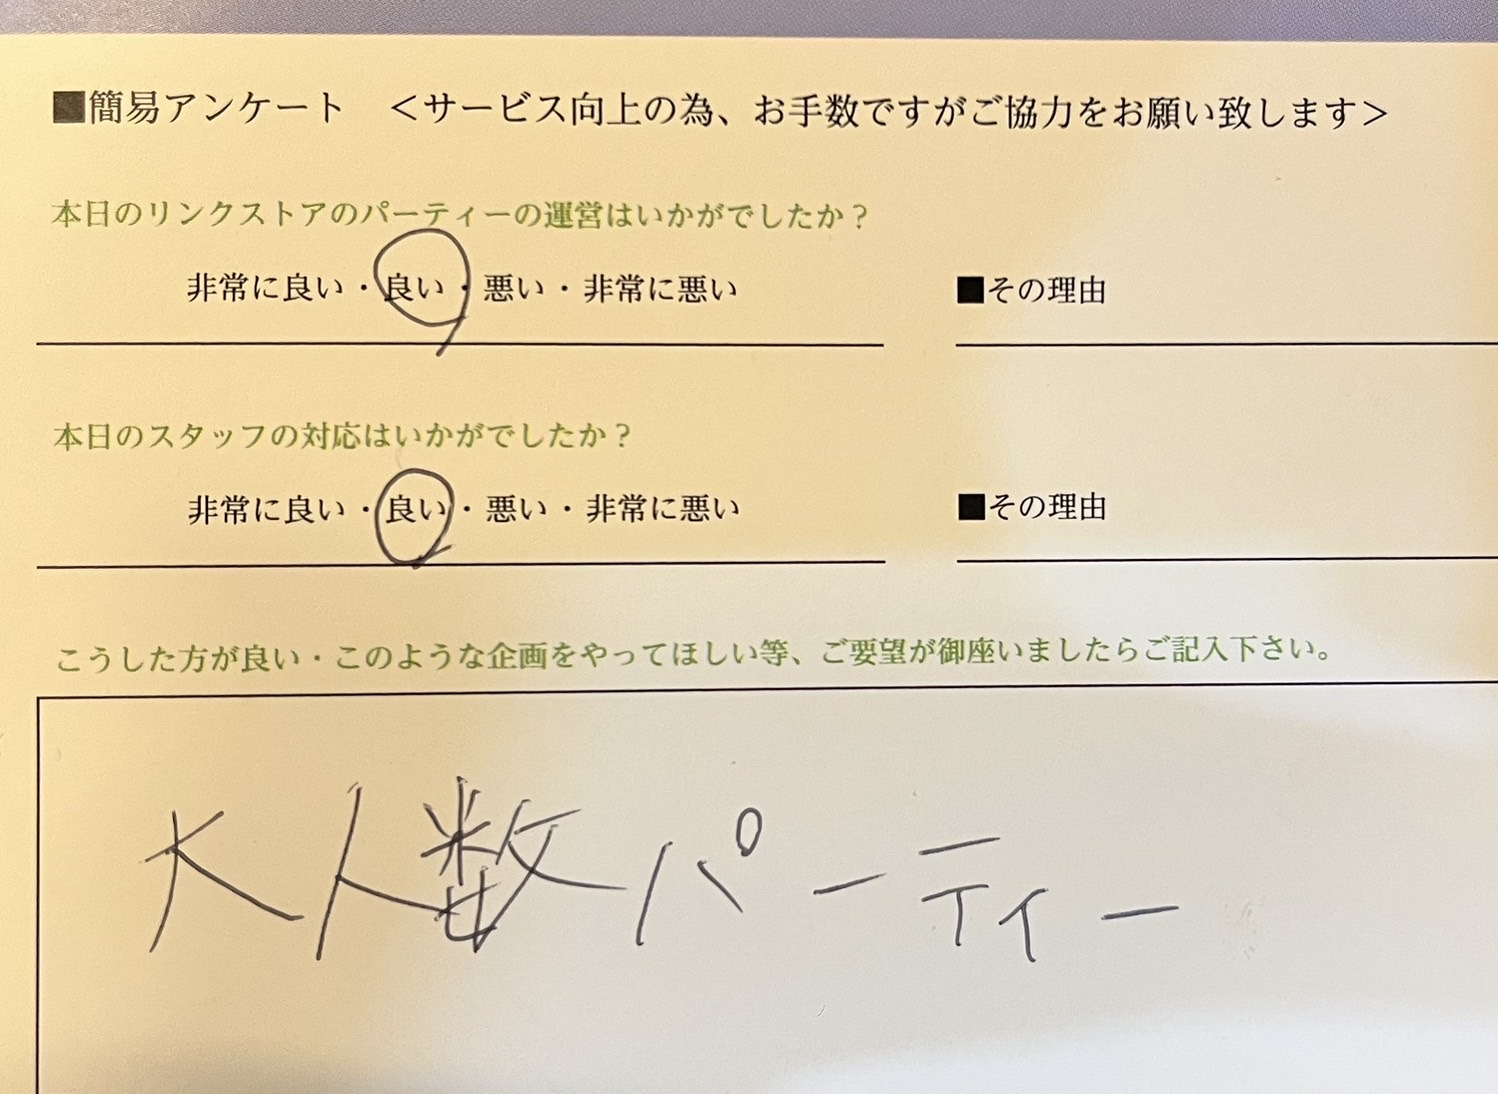 ■簡易アンケート　＜サービス向上の為、お手数ですがご協力をお願い致します＞
本日のリンクストアのパーティーの運営はいかがでしたか？
非常に良い・良い・悪い・非常に悪い　■その理由
本日のスタッフの対応はいかがでしたか？
非常に良い・良い・悪い・非常に悪い　■その理由
こうした方が良い・このような企画をやってほしい等、ご要望が御座いましたらご記入下さい。
大人数パーティー